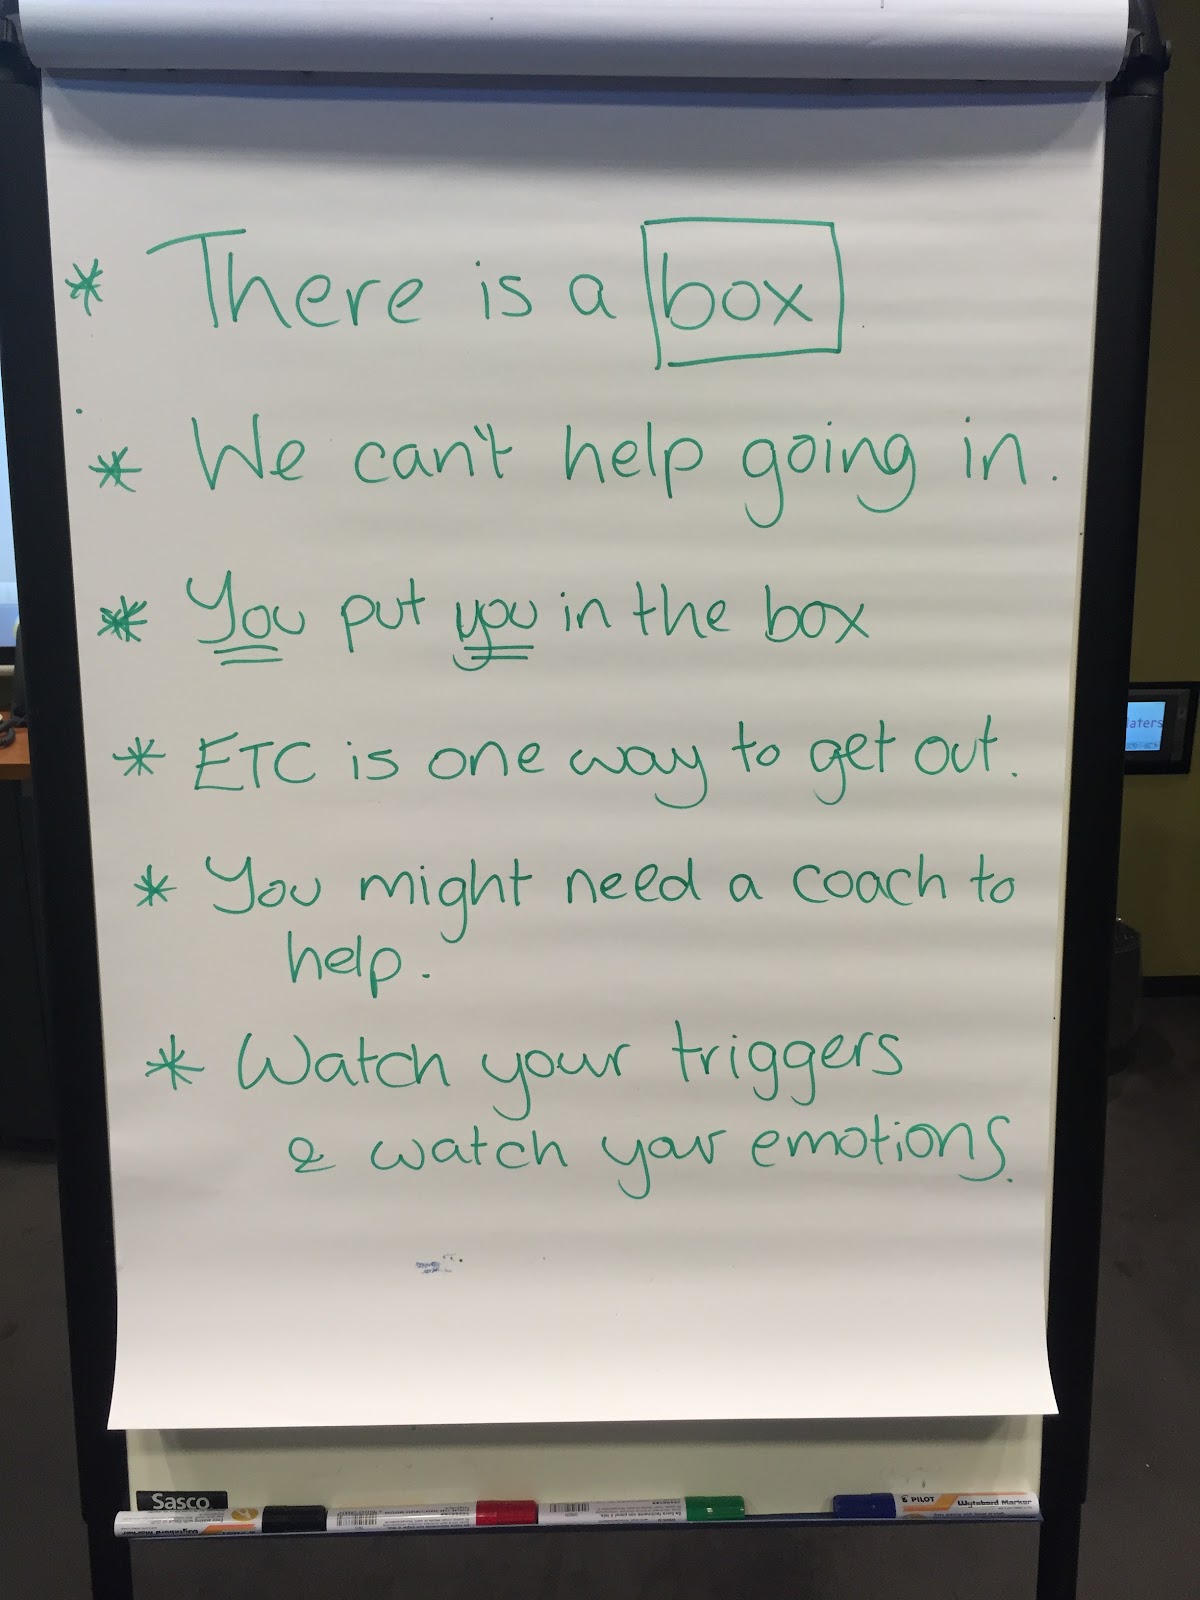 * There is a box
* We can't help going in.
* You put you in the box
* ETC is one way to get out.
* You might need a coach to
help.
* Watch your triggers
& watch your emotions.
laters
Sasco
PILOT Wyteboard Marker